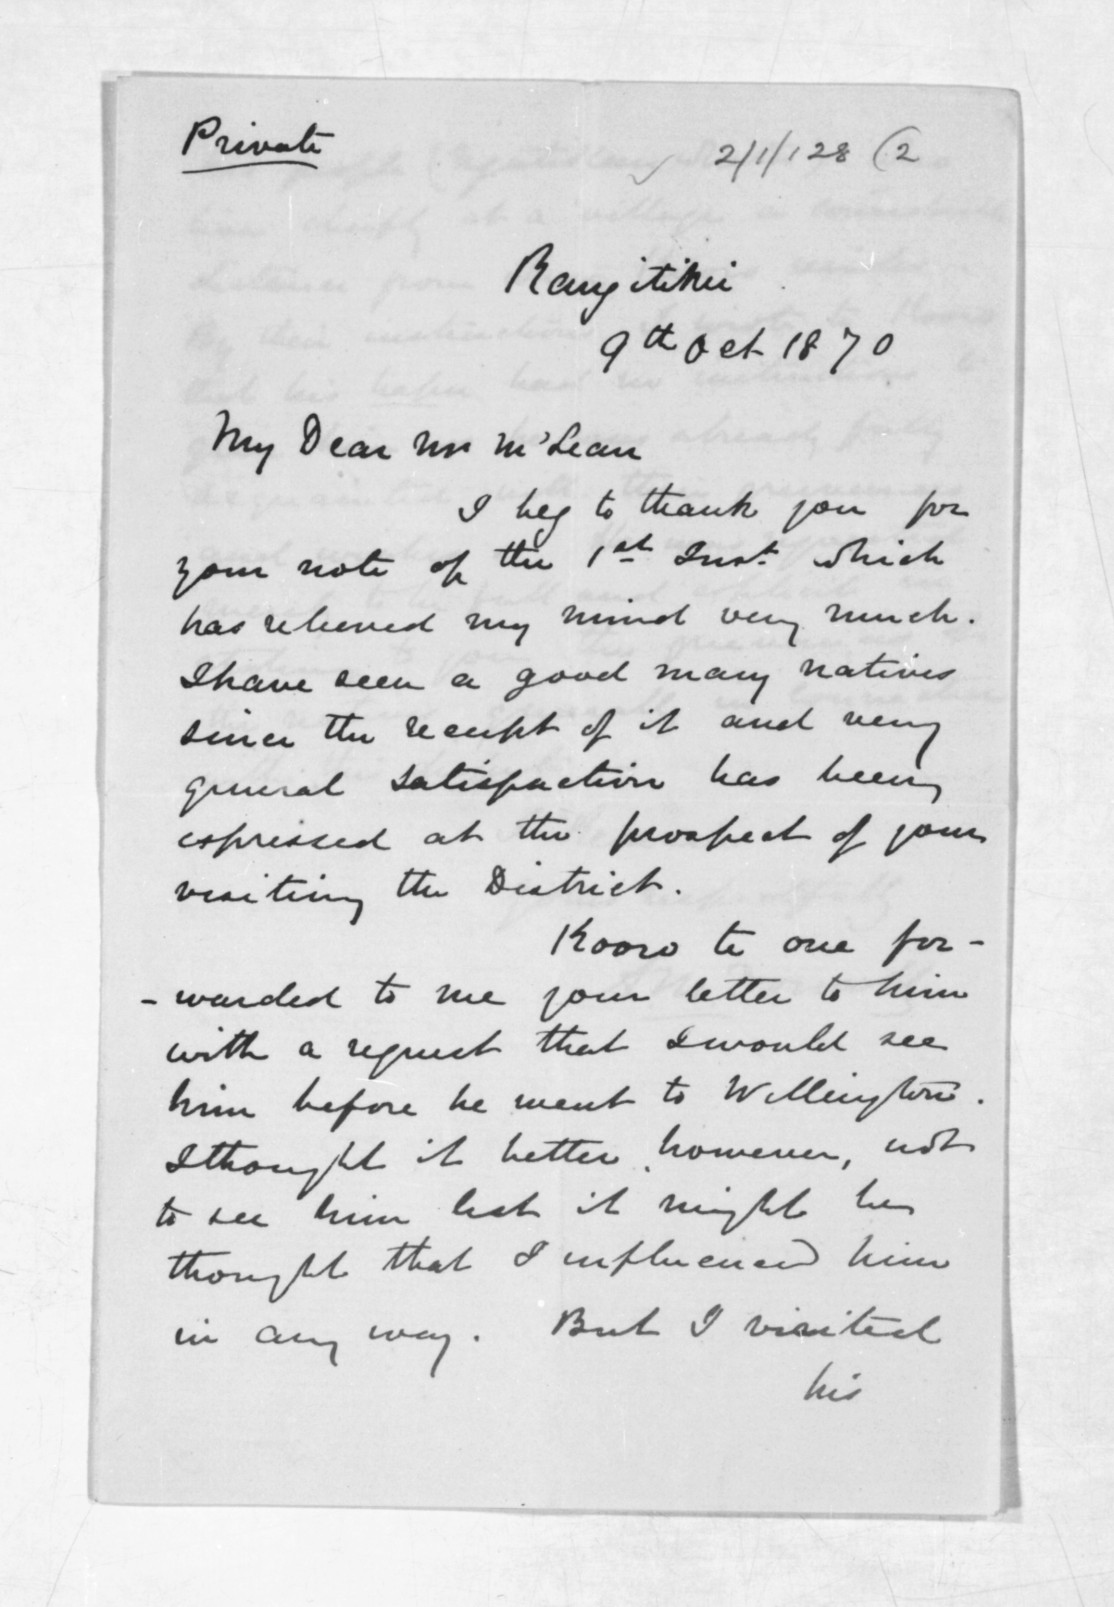 Private
2/1/128 (2
Rangitikei
9th Oct 1870
My Dear Mr M'Lean
I beg to thank you for
your note of the 1st Inst. which
has relieved my mind very much.
I have seen a good many natives
since the receipt of it and very
general satisfaction has been
expressed at the prospect of your
visiting the District.
Kooro te one for-
-warded to me your letter to him
with a request that I would see
him before he went to Wellington.
I thought it better, however, not
to see him lest it might be
thought that I influenced him
in any way. But I visited
his